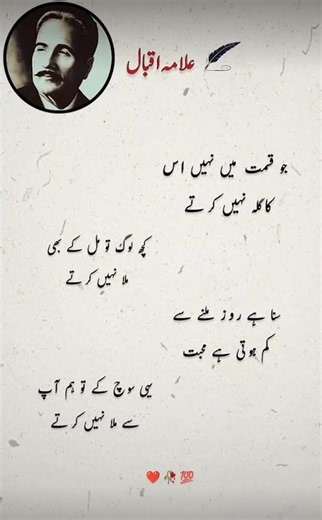 علامہ اقبال
جو قمت میں نہیں اس
کا گلہ نہیں کرتے
کچھ لوگ تو مل کے بھی
ملا نہیں کرتے
سنا ہے روز ملنے سے
کم ہوتی ہے محبت
یہی سوچ کے تو ہم آپ
سے ملا نہیں کرتے
❤️🥀💯